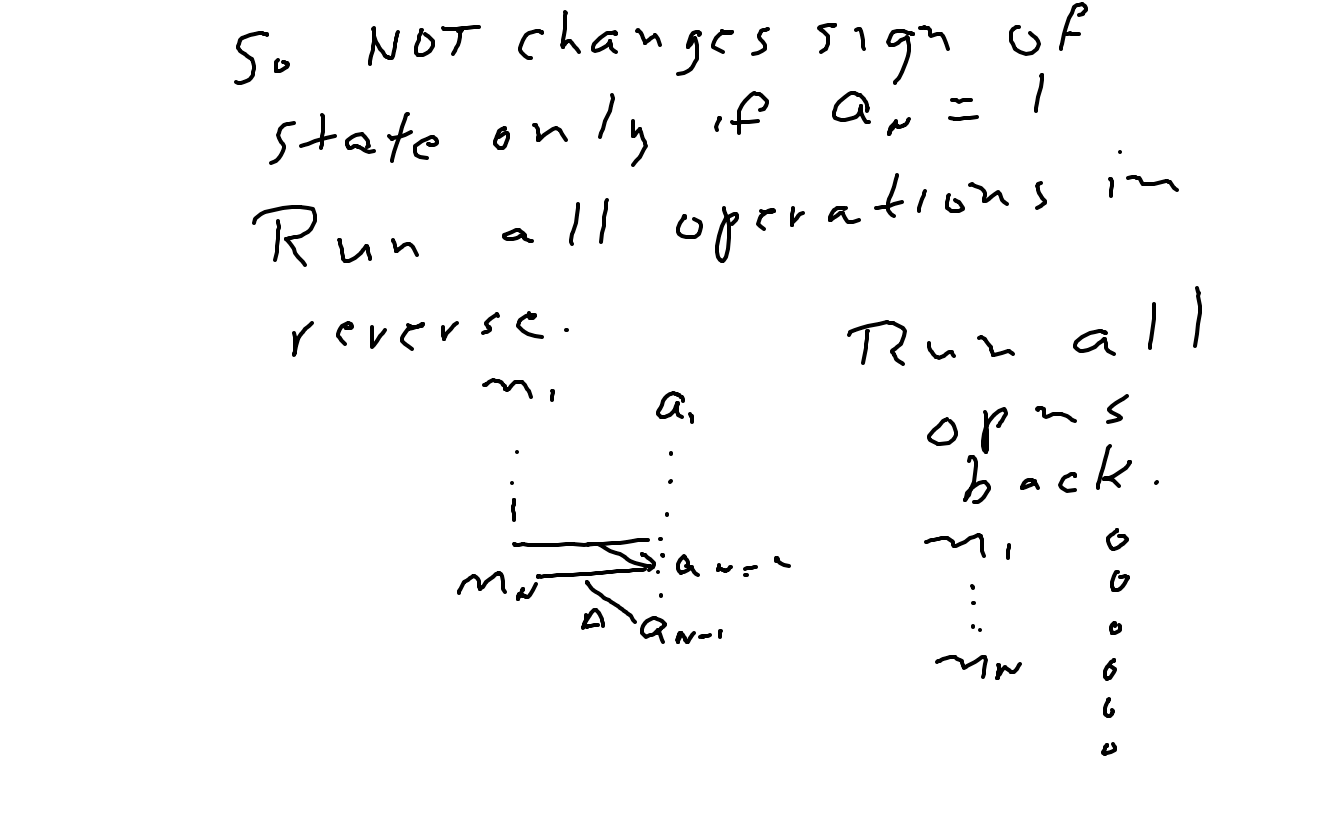 So NOT changes sign of
state only if a_N = 1
Run all operations in
reverse.
m_1 a_1
m_N a_{N-2}
Δ a_{N-1}
Run all
opns
back.
m_1 0
0
0
m_N 0
0
0